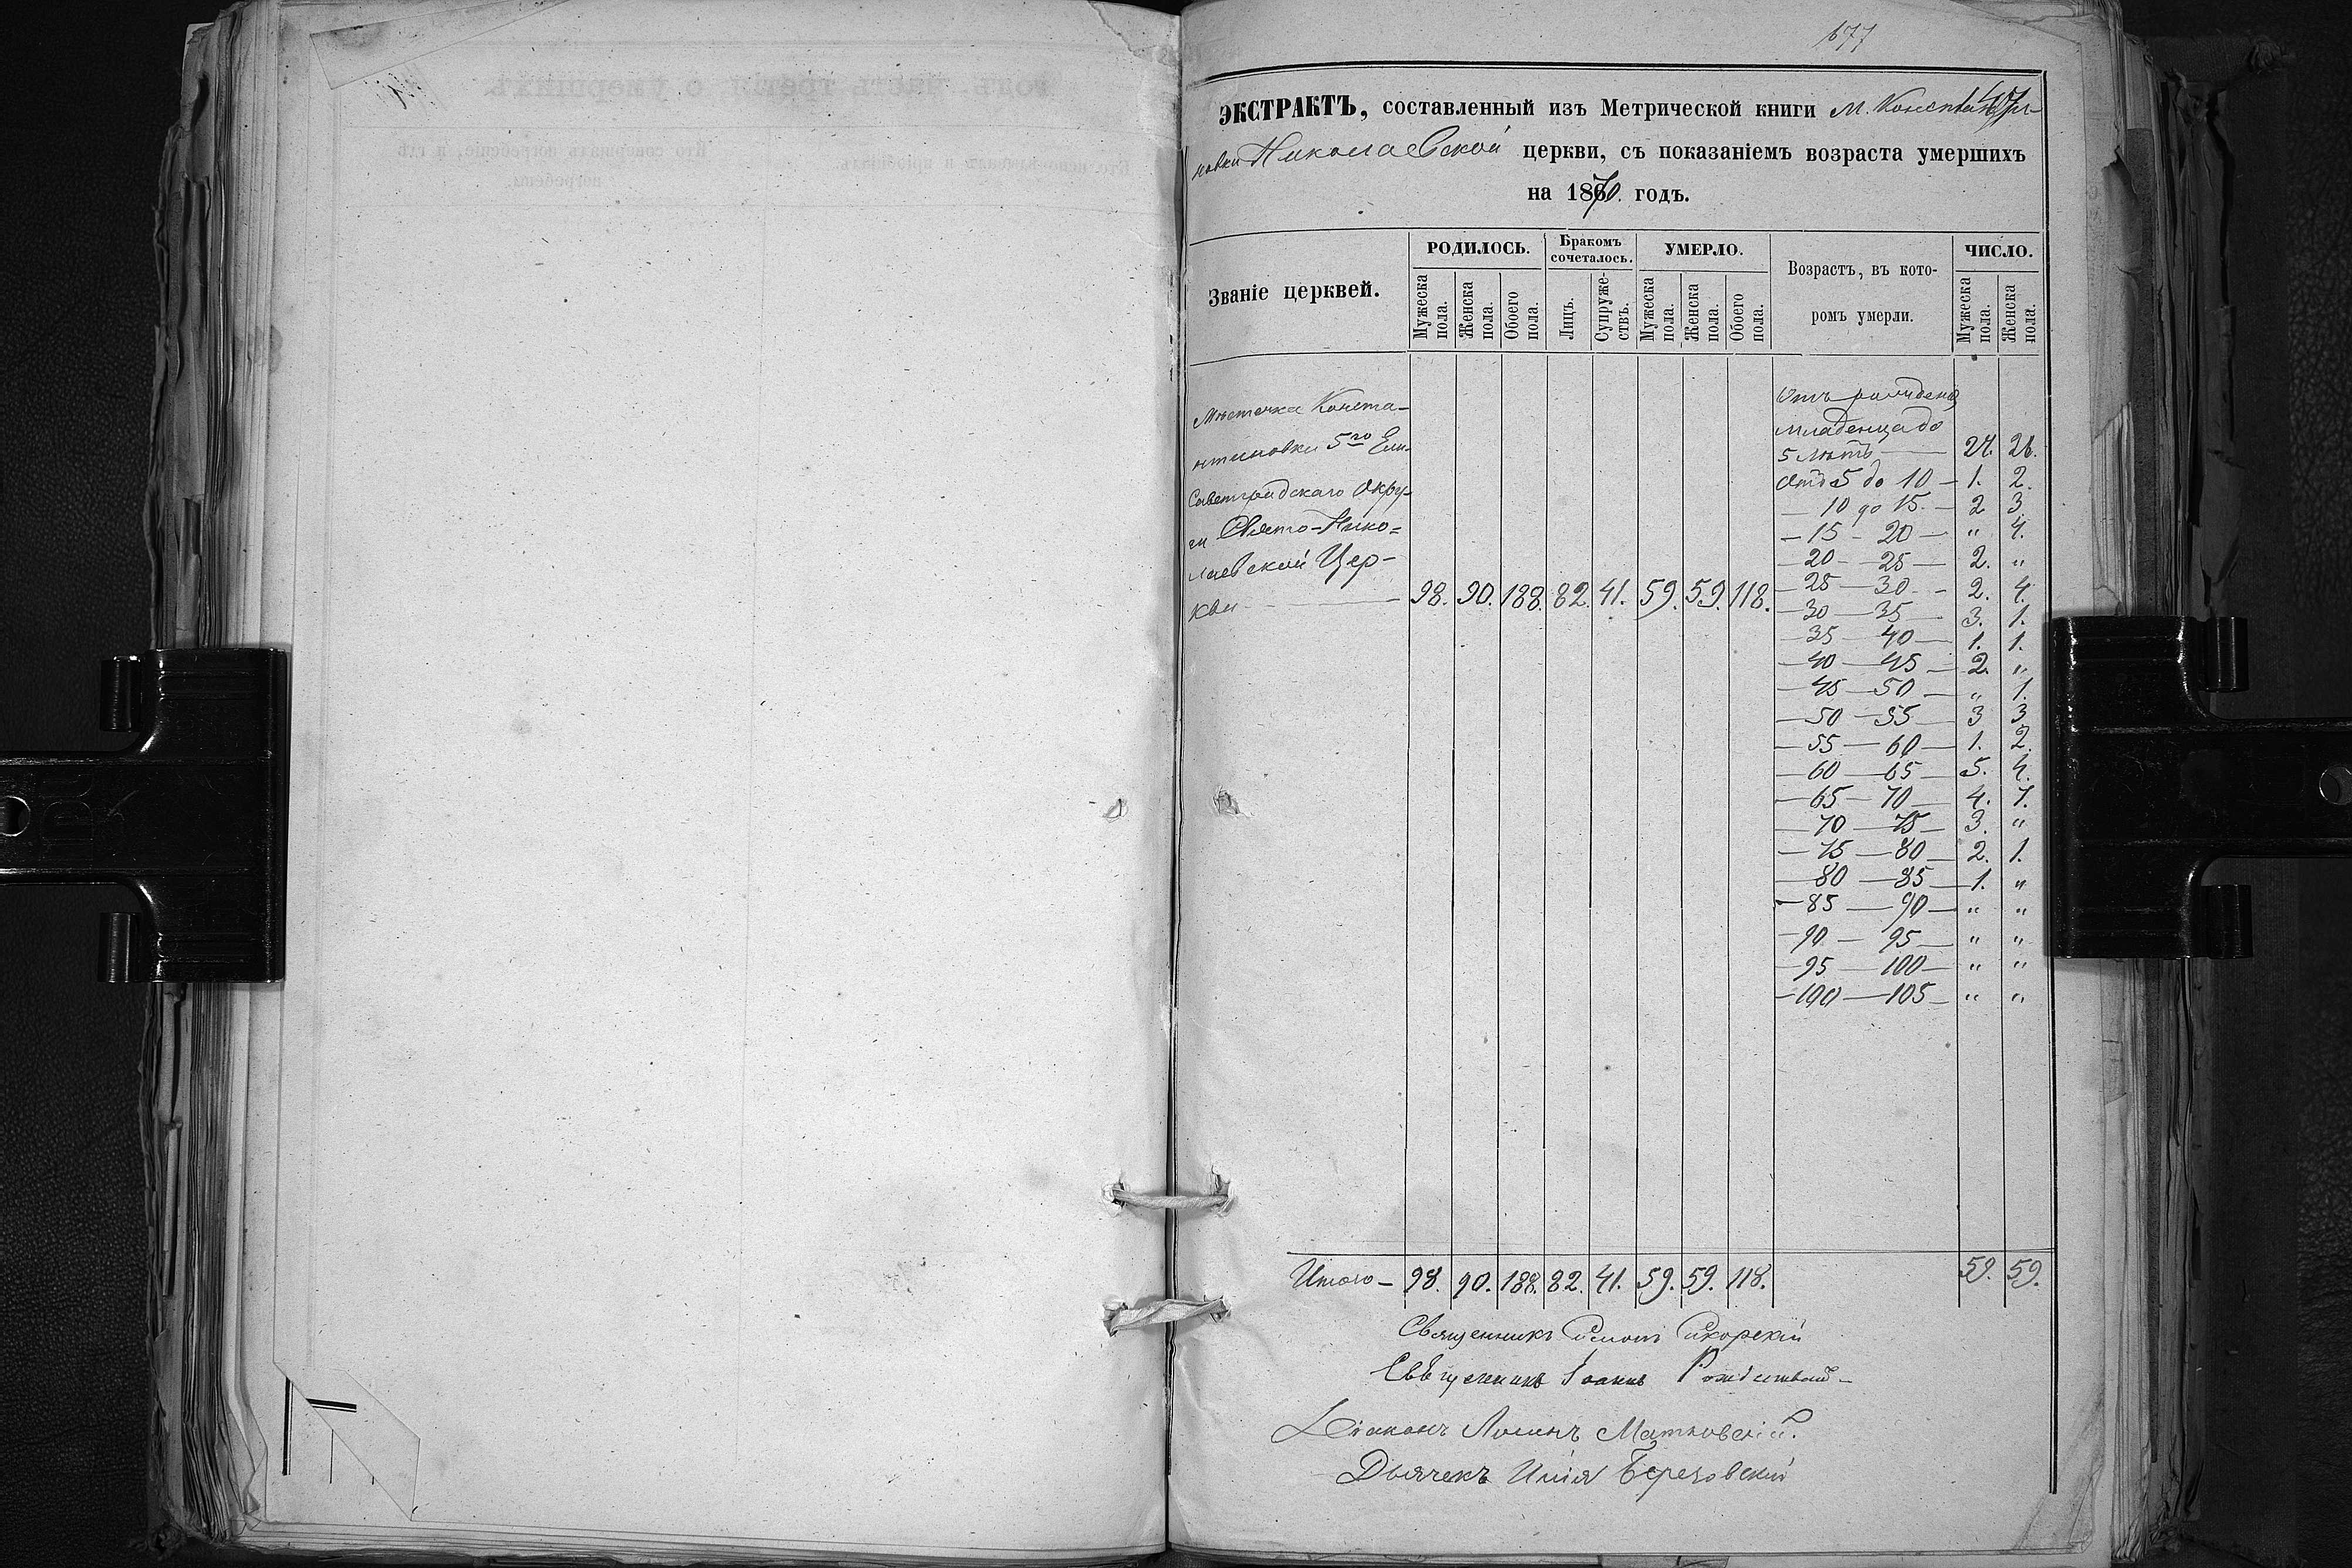 677
ЭКСТРАКТЪ, составленный изъ Метрической книги м. Константи-
новки Николаевской церкви, съ показаніемъ возраста умершихъ
на 1870 годъ.
Званіе церквей.
РОДИЛОСЬ.
Бракомъ сочеталось.
УМЕРЛО.
Возрастъ, въ кото-
ромъ умерли.
ЧИСЛО.
Мужеска пола.
Женска пола.
Обоего пола.
Лицъ.
Супруже-ствъ.
Мужеска пола.
Женска пола.
Обоего пола.
Мужеска пола.
Женска пола.
Мѣстечка Конста-
нтиновки 5го Ели-
саветградскаго Окру-
га Свято-Нико=
лаевской Цер-
кви — 98. 90. 188. 82. 41. 59. 59. 118.
Отъ рожденія
младенца до
5 лѣтъ — 27. 26.
Отъ 5 до 10 — 1. 2.
— 10 до 15. — 2 3.
— 15 - 20 — " 4.
— 20 - 25 — 2. "
— 25 — 30 - 2. 4.
— 30 — 35 — 3. 1.
— 35 — 40 — 1. 1.
— 40 — 45 — 2. "
— 45 — 50 — " 1.
— 50 — 55 — 3 3
— 55 — 60 — 1. 2.
— 60 — 65 — 5. 4.
— 65 — 70 — 4. 7.
— 70 — 75 — 3. "
— 75 — 80 — 2. 1.
— 80 — 85 — 1. "
— 85 — 90 — " "
— 90 — 95 — " "
— 95 — 100 — " "
— 100 — 105 — " "
Итого — 98. 90. 188. 82. 41. 59. 59. 118. 59. 59.
Священникъ Симонъ Сикорскій
Священникъ Іоаннъ
Діаконъ Матковскій.
Дьячекъ Илія Березовскій